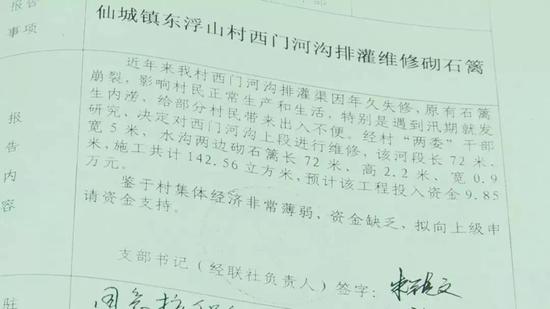 报告
事项
仙城镇东浮山村西门河沟排灌维修砌石篱
报
告
内
容
近年来我村西门河沟排灌渠因年久失修，原有石篱
崩裂，影响村民正常生产和生活，特别是遇到汛期就发
生内涝，给部分村民带来出入不便。经村“两委”干部
研究，决定对西门河沟上段进行维修，该河段长 72 米、
宽 5 米，水沟两边砌石篱长 72 米、高 2.2 米、宽 0.9
米，施工共计 142.56 立方米，预计该工程投入资金 9.85
万元。
鉴于村集体经济非常薄弱，资金缺乏，拟向上级申
请资金支持。
支部书记（经联社负责人）签字：
驻
同意